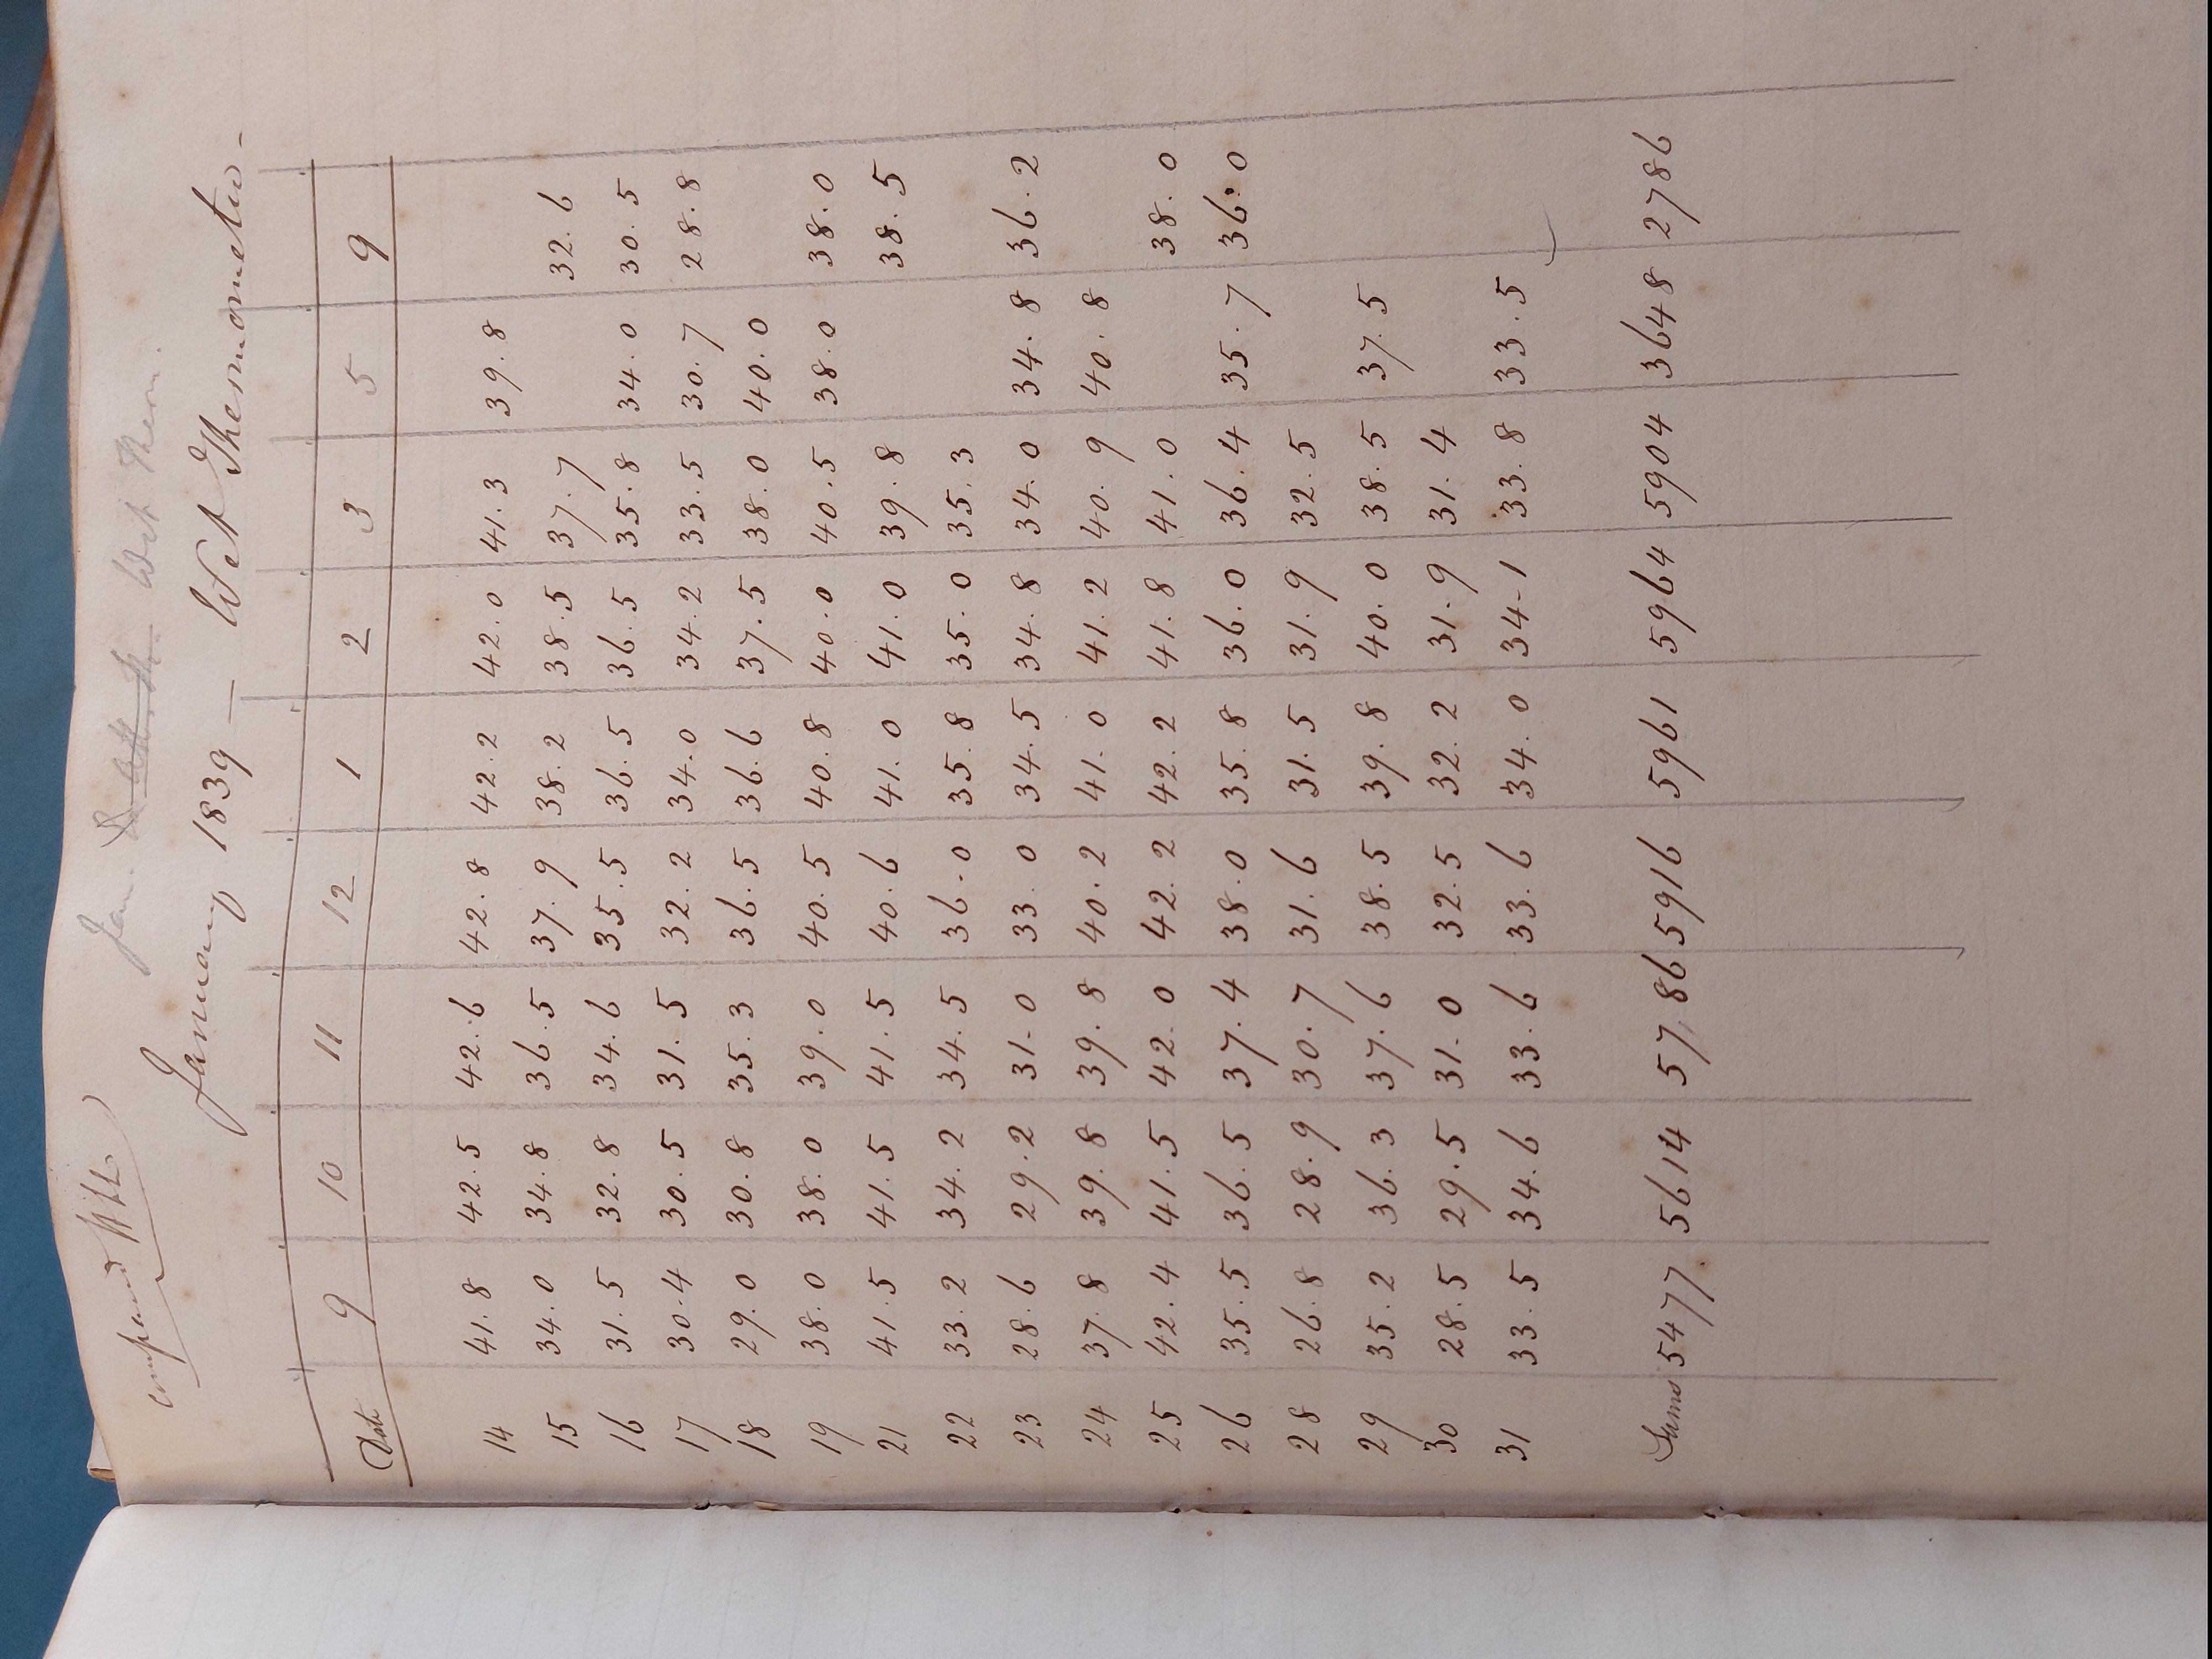 compared
Jan. Wet Therm.
January 1839 — Wet Thermometer -
Date 9 10 11 12 1 2 3 5 9
14 41.8 42.5 42.6 42.8 42.2 42.0 41.3 39.8
15 34.0 34.8 36.5 37.9 38.2 38.5 37.7 32.6
16 31.5 32.8 34.6 35.5 36.5 36.5 35.8 34.0 30.5
17 30.4 30.5 31.5 32.2 34.0 34.2 33.5 30.7 28.8
18 29.0 30.8 35.3 36.5 36.6 37.5 38.0 40.0
19 38.0 38.0 39.0 40.5 40.8 40.0 40.5 38.0 38.0
21 41.5 41.5 41.5 40.6 41.0 41.0 39.8 38.5
22 33.2 34.2 34.5 36.0 35.8 35.0 35.3
23 28.6 29.2 31.0 33.0 34.5 34.8 34.0 34.8 36.2
24 37.8 39.8 39.8 40.2 41.0 41.2 40.9 40.8
25 42.4 41.5 42.0 42.2 42.2 41.8 41.0 38.0
26 35.5 36.5 37.4 38.0 35.8 36.0 36.4 35.7 36.0
28 26.8 28.9 30.7 31.6 31.5 31.9 32.5
29 35.2 36.3 37.6 38.5 39.8 40.0 38.5 37.5
30 28.5 29.5 31.0 32.5 32.2 31.9 31.4
31 33.5 34.6 33.6 33.6 34.0 34-1 33.8 33.5
Sums 5477 5614 57,86 5916 5961 5964 5904 3648 2786